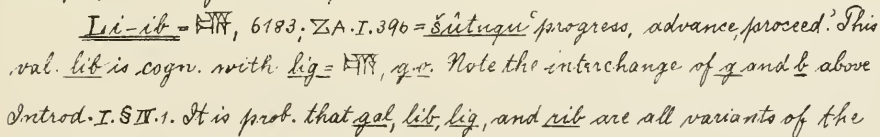 Li-ib = 𒆗, 6183; ZA.I.396 = šûtuqu ‘progress, advance, proceed.’ This
val. lib is cogn. with lig = 𒆗, q.v. Note the interchange of g and b above
Introd. I. § IV. 1. It is prob. that gal, lib, lig, and rib are all variants of the